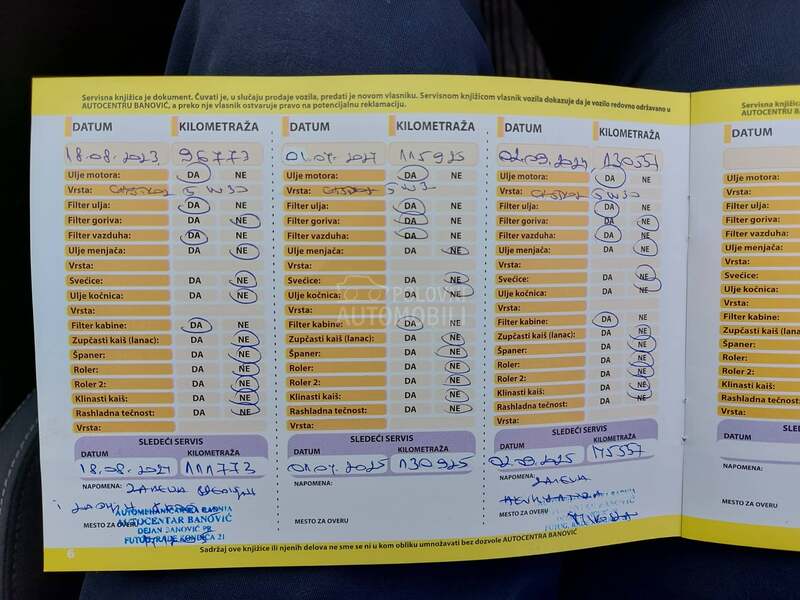 Servisna knjižica je dokument. Čuvati je, u slučaju prodaje vozila, predati je novom vlasniku. Servisnom knjižicom vlasnik vozila dokazuje da je vozilo redovno održavano u
AUTOCENTRU BANOVIĆ, a preko nje vlasnik ostvaruje pravo na potencijalnu reklamaciju.
DATUM KILOMETRAŽA
18.08.2023 96773
Ulje motora: DA NE
Vrsta: 5W30
Filter ulja: DA NE
Filter goriva: DA NE
Filter vazduha: DA NE
Ulje menjača: DA NE
Vrsta:
Svećice: DA NE
Ulje kočnica: DA NE
Vrsta:
Filter kabine: DA NE
Zupčasti kaiš (lanac): DA NE
Španer: DA NE
Roler: DA NE
Roler 2: DA NE
Klinasti kaiš: DA NE
Rashladna tečnost: DA NE
Vrsta:
SLEDEĆI SERVIS
DATUM KILOMETRAŽA
18.08.2024 111773
NAPOMENA: ZAMENA
MESTO ZA OVERU
AUTOMEHANIČARSKA RADNJA
AUTOCENTAR BANOVIĆ
DEJAN BANOVIĆ PR
FUTOG, RADE KONDIĆA 21
DATUM KILOMETRAŽA
115925
Ulje motora: DA NE
Vrsta:
Filter ulja: DA NE
Filter goriva: DA NE
Filter vazduha: DA NE
Ulje menjača: DA NE
Vrsta:
Svećice: DA NE
Ulje kočnica: DA NE
Vrsta:
Filter kabine: DA NE
Zupčasti kaiš (lanac): DA NE
Španer: DA NE
Roler: DA NE
Roler 2: DA NE
Klinasti kaiš: DA NE
Rashladna tečnost: DA NE
Vrsta:
SLEDEĆI SERVIS
DATUM KILOMETRAŽA
130925
NAPOMENA:
MESTO ZA OVERU
DATUM KILOMETRAŽA
02.09.2024 130557
Ulje motora: DA NE
Vrsta: 5W30
Filter ulja: DA NE
Filter goriva: DA NE
Filter vazduha: DA NE
Ulje menjača: DA NE
Vrsta:
Svećice: DA NE
Ulje kočnica: DA NE
Vrsta:
Filter kabine: DA NE
Zupčasti kaiš (lanac): DA NE
Španer: DA NE
Roler: DA NE
Roler 2: DA NE
Klinasti kaiš: DA NE
Rashladna tečnost: DA NE
Vrsta:
SLEDEĆI SERVIS
DATUM KILOMETRAŽA
02.09.2025
NAPOMENA: ZAMENA
MESTO ZA OVERU
POLOVNI
AUTOMOBILI
6
Sadržaj ove knjižice ili njenih delova ne sme se ni u kom obliku umnožavati bez dozvole AUTOCENTRA BANOVIĆ
Servisna
AUTOCENTRU
DATUM
Ulje motora:
Vrsta:
Filter ulja:
Filter goriva:
Filter vazduha:
Ulje menjača:
Vrsta:
Svećice:
Ulje kočnica:
Vrsta:
DATUM
NAPOMENA:
MESTO ZA OVERU